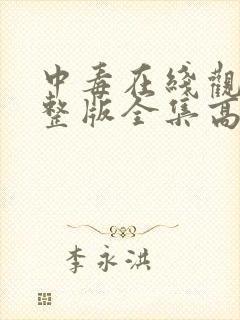 中毒在綫觀
整版全集高
李永洪